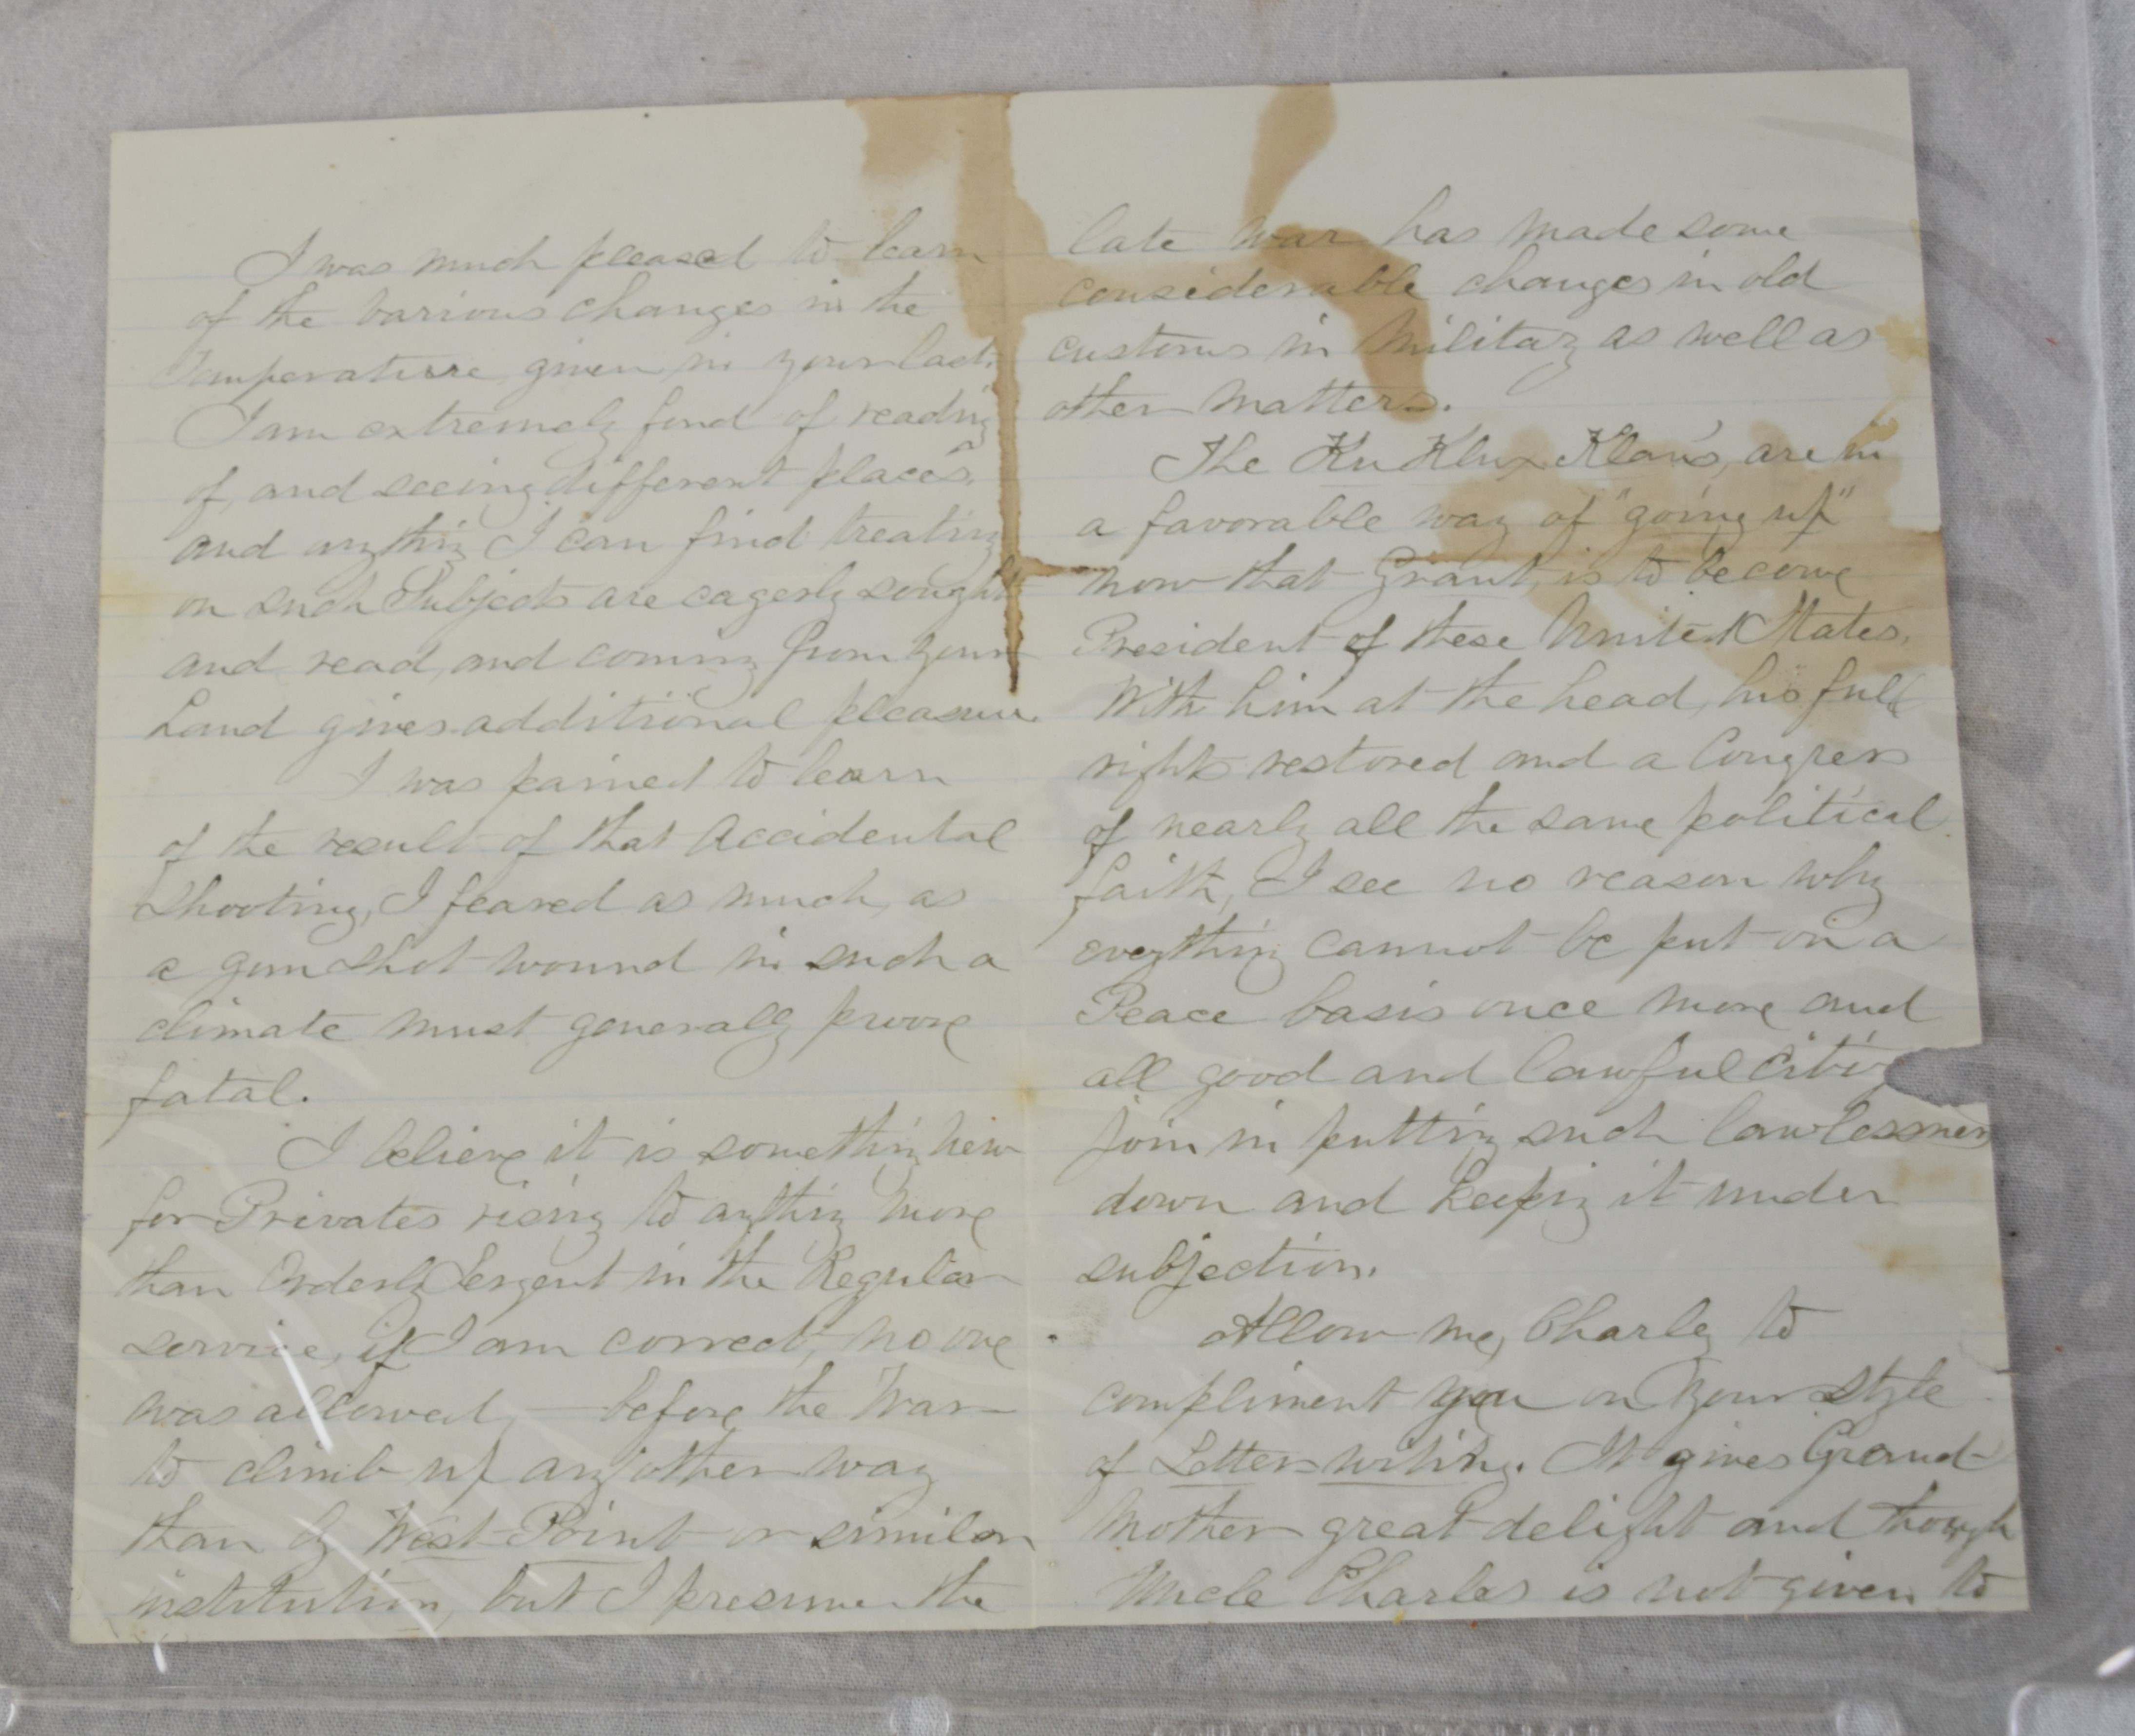 I was much pleased to learn
of the various changes in the
Temperature given in your last.
I am extremely fond of reading
of, and seeing different places,
and anything I can find treating
on such Subjects are eagerly sought
and read, and coming from your
Land gives additional pleasure.
I was pained to learn
of the result of that Accidental
Shooting, I feared as much, as
a gun shot wound in such a
climate must generally prove
fatal.
I believe it is something new
for Privates rising to anything more
than Orderly Sergent in the Regular
service, if I am correct, no one
was allowed, — before the War —
to climb up any other way
than by West-Point or similar
institution, but I presume the
late war has made some
considerable changes in old
customs in Military as well as
other matters.
The Ku Klux Klan's, are in
a favorable way of "going up"
now that Grant, is to become
President of these United States,
With him at the head, his full
rights restored and a Congress
of nearly all the same political
faith, I see no reason why
everything cannot be put on a
Peace basis once more and
all good and lawful Citiz
join in putting such lawlessness
down and keeping it under
subjection.
Allow me, Charley to
compliment you on your style
of Letter-writing. It gives Grand-
mother great delight and though
Uncle Charles is not given to